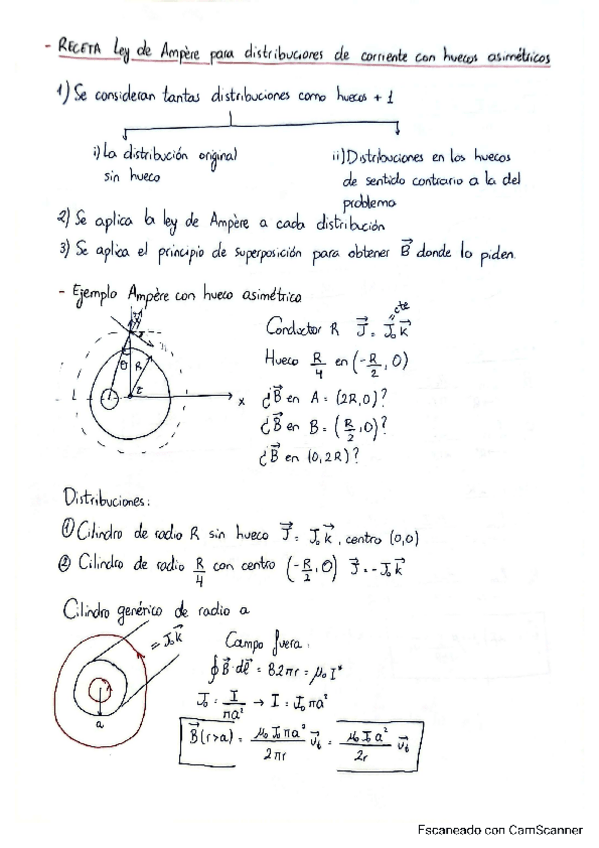 - RECETA Ley de Ampère para distribuciones de corriente con huecos asimétricos
1) Se consideran tantas distribuciones como huecos + 1
i) La distribución original sin hueco
ii) Distribuciones en los huecos de sentido contrario a la del problema
2) Se aplica la ley de Ampère a cada distribución
3) Se aplica el principio de superposición para obtener B⃗ donde lo piden.
- Ejemplo Ampère con hueco asimétrico
θ R
x
Conductor R J⃗ = J₀ k⃗
cte
Hueco R/4 en (-R/2, 0)
¿B⃗ en A = (2R,0)?
¿B⃗ en B = (R/2,0)?
¿B⃗ en (0,2R)?
Distribuciones:
① Cilindro de radio R sin hueco J⃗ = J₀ k⃗, centro (0,0)
② Cilindro de radio R/4 con centro (-R/2, 0) J⃗ = -J₀ k⃗
Cilindro genérico de radio a
= J₀ k⃗
a
Campo fuera:
∮ B⃗·dℓ⃗ = B2πr = μ₀ I*
J₀ = I/πa² → I = J₀πa²
B⃗(r>a) = μ₀ J₀πa²/2πr u⃗ₜ = μ₀ J₀a²/2r u⃗ₜ
Escaneado con CamScanner